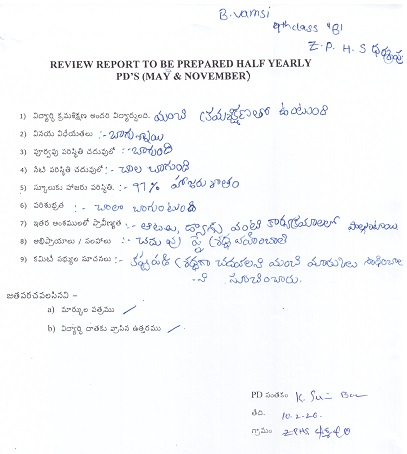 B. vamsi
9th class "B"
Z. P. H. S
REVIEW REPORT TO BE PREPARED HALF YEARLY
PD'S (MAY & NOVEMBER)
1) విద్యార్థి క్రమశిక్షణ అందరి విద్యార్థులది. మంచి క్రమశిక్షణతో ఉంటుంది
2) వినయ విధేయతలు :- బాగున్నాయి
3) పూర్వపు పరిస్థితి చదువులో :- బాగుంది
4) నేటి పరిస్థితి చదువులో :- చాల బాగుంది
5) స్కూలుకు హాజరు పరిస్థితి. :- 97% హాజరు శాతం
6) పరిశుభ్రత :- చాలా బాగుంటుంది
7) ఇతర అంశములలో ప్రావీణ్యత :- ఆటలు, డ్యాన్సు వంటి కార్యక్రమాలలో
8) అభిప్రాయాలు / సలహాలు :- చదువు పై శ్రద్ధ వహించాలి
9) కమిటీ సభ్యుల సూచనలు :- కష్టపడి శ్రద్ధగా చదవాలని మంచి మార్కులు సాధించాల
-ని సూచించారు.
జతపరచవలసినవి –
a) మార్కుల పత్రము
b) విద్యార్థి దాతకు వ్రాసిన ఉత్తరము
PD సంతకం K.
తేది. 10-2-20.
గ్రామం ZPHS